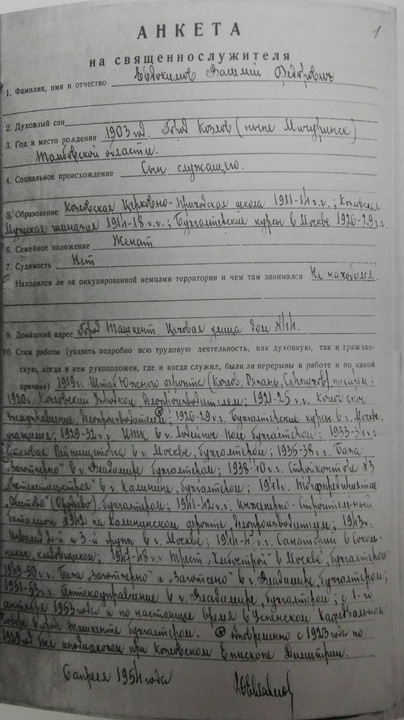 1
АНКЕТА
на священнослужителя
1. Фамилия, имя и отчество Евдокимов Василий Федорович
2. Духовный сан
3. Год и место рождения 1903 год. Город Козлов (ныне Мичуринск)
Тамбовской области.
4. Социальное происхождение Сын служащего.
5. Образование Козловская Церковно-Приходская школа 1911-14 г.г.; Козловская
Мужская гимназия 1914-18 г.г.; Бухгалтерские курсы в Москве 1926-29 г.г.
6. Семейное положение Женат
7. Судимость Нет
8. Находился ли на оккупированной немцами территории и чем там занимался Не находился
9. Домашний адрес Город Ташкент улица дом
10. Стаж работы (указать подробно всю трудовую деятельность, как духовную, так и граждан-
скую, когда и кем рукоположен, где и когда служил, были ли перерывы в работе и по какой
причине) 1919г. Штаб Южного фронта (Козлов, Серпухов), писарем;
1920г. Козловский делопроизводителем; 1921-25 г.г. Козловское
делопроизводителем; 1926-29 г.г. Бухгалтерские курсы в г. Москве,
учащимся; 1929-32 г.г. бухгалтером; 1933-34 г.г.
Столовая в Москве, бухгалтером; 1935-38 г.г. База
"Заготзерно" в г. Владимире, бухгалтером; 1938-40 г.г. Стройконтора №3
в г. Калинине, бухгалтером; 1941г.
бухгалтером; 1941-42 г.г. Инженерно-Строительный
батальон на Калининском фронте, делопроизводителем; 1943г.
2-й и 3-й групп в г. Москве; 1944 г.г. Санаторий в
кладовщиком; Трест "Хлебострой" в Москве, бухгалтером
1949-50 г.г. База "Заготзерно" и "Заготсено" в г. Владимире, бухгалтером;
1951-53 г.г. Аптекоуправление в г. Владимире, бухгалтером; с 1-го
октября 1953 года и по настоящее время в Успенском Кафедральном
Соборе в г. Ташкенте бухгалтером. Одновременно с 1923 года по
был иподиаконом при Козловском Епископе Димитрии.
6 апреля 1954 года